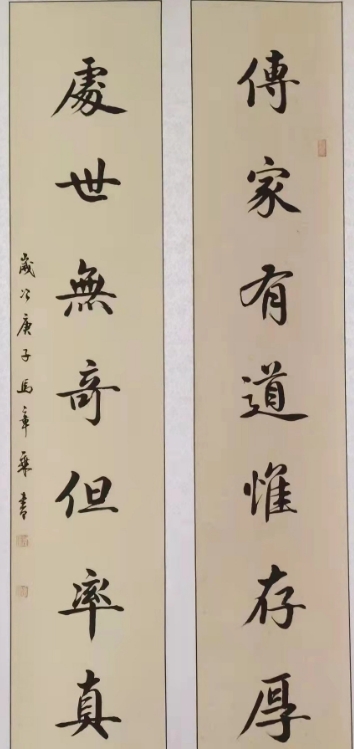 傳家有道惟存厚
處世無奇但率真
歲次庚子馬章乘書